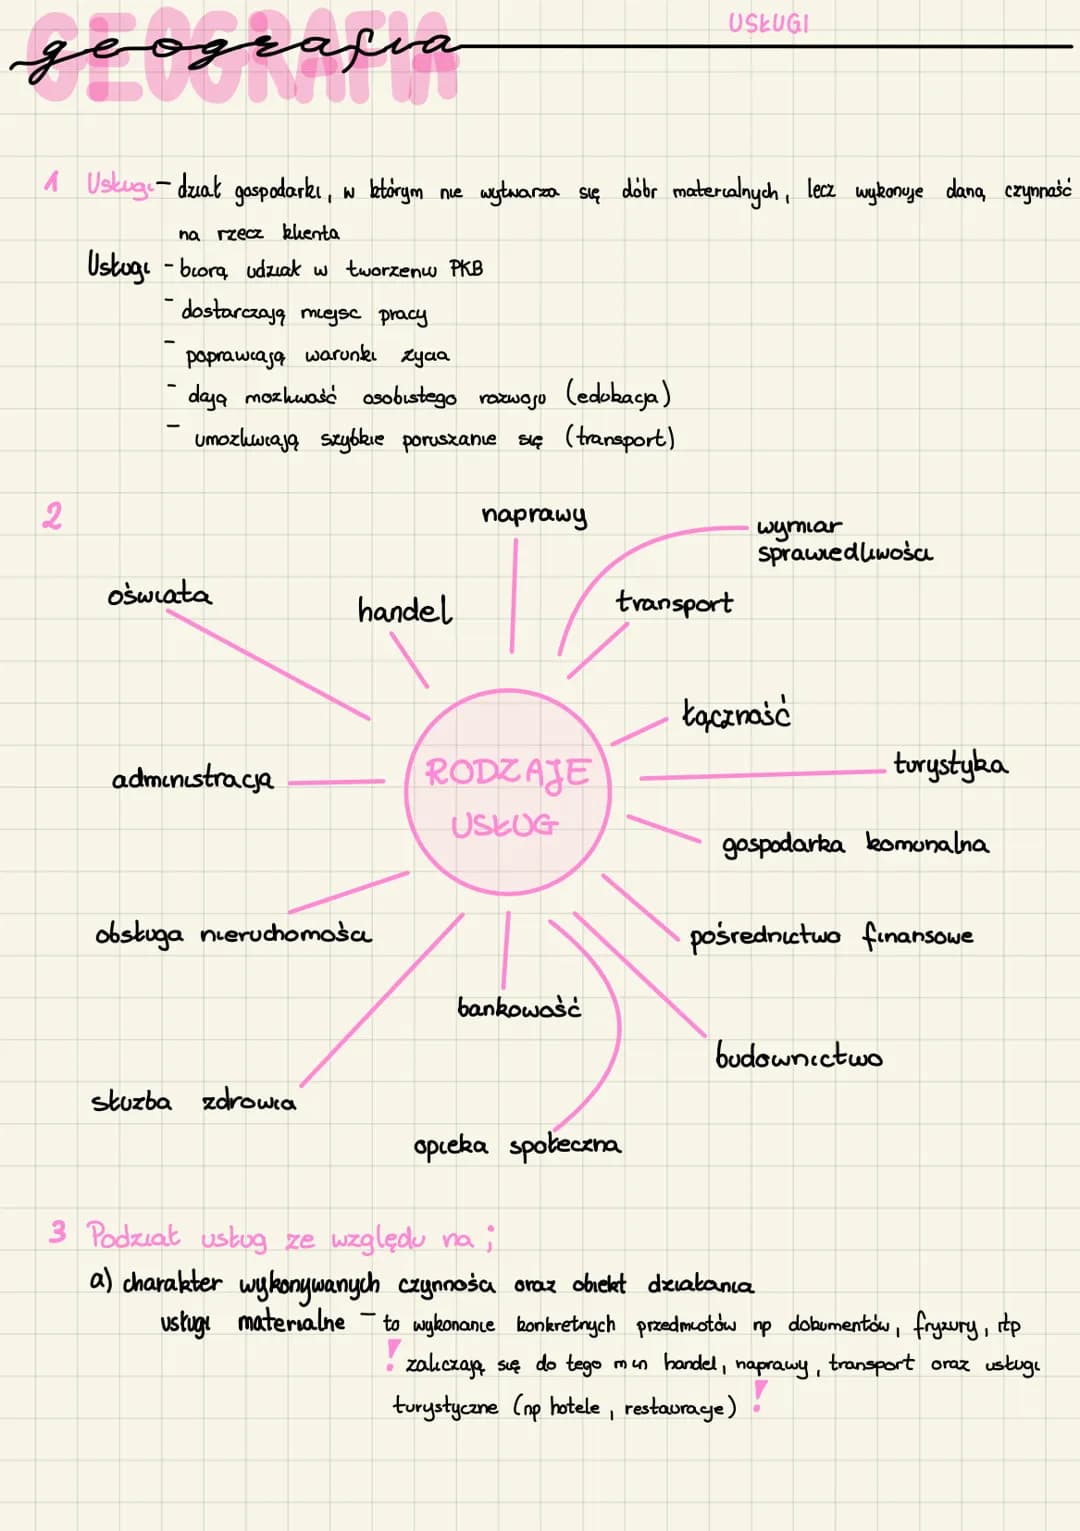 USŁUGI
GEOGRAFIA
geografia
1 Usługi - dział gospodarki, w którym nie wytwarza się dóbr materialnych, lecz wykonuje daną czynność
na rzecz klienta
Usługi - biorą udział w tworzeniu PKB
- dostarczają miejsc pracy
- poprawiają warunki życia
- dają możliwość osobistego rozwoju (edukacja)
- umożliwiają szybkie poruszanie się (transport)
2
naprawy
wymiar
sprawiedliwości
oświata
handel
transport
łączność
RODZAJE
USŁUG
turystyka
administracja
gospodarka komunalna
obsługa nieruchomości
pośrednictwo finansowe
bankowość
budownictwo
służba zdrowia
opieka społeczna
3 Podział usług ze względu na ;
a) charakter wykonywanych czynności oraz obiekt działania
usługi materialne - to wykonanie konkretnych przedmiotów np dokumentów, fryzury, itp
! zaliczają się do tego min handel, naprawy, transport oraz usługi
turystyczne (np hotele, restauracje) !